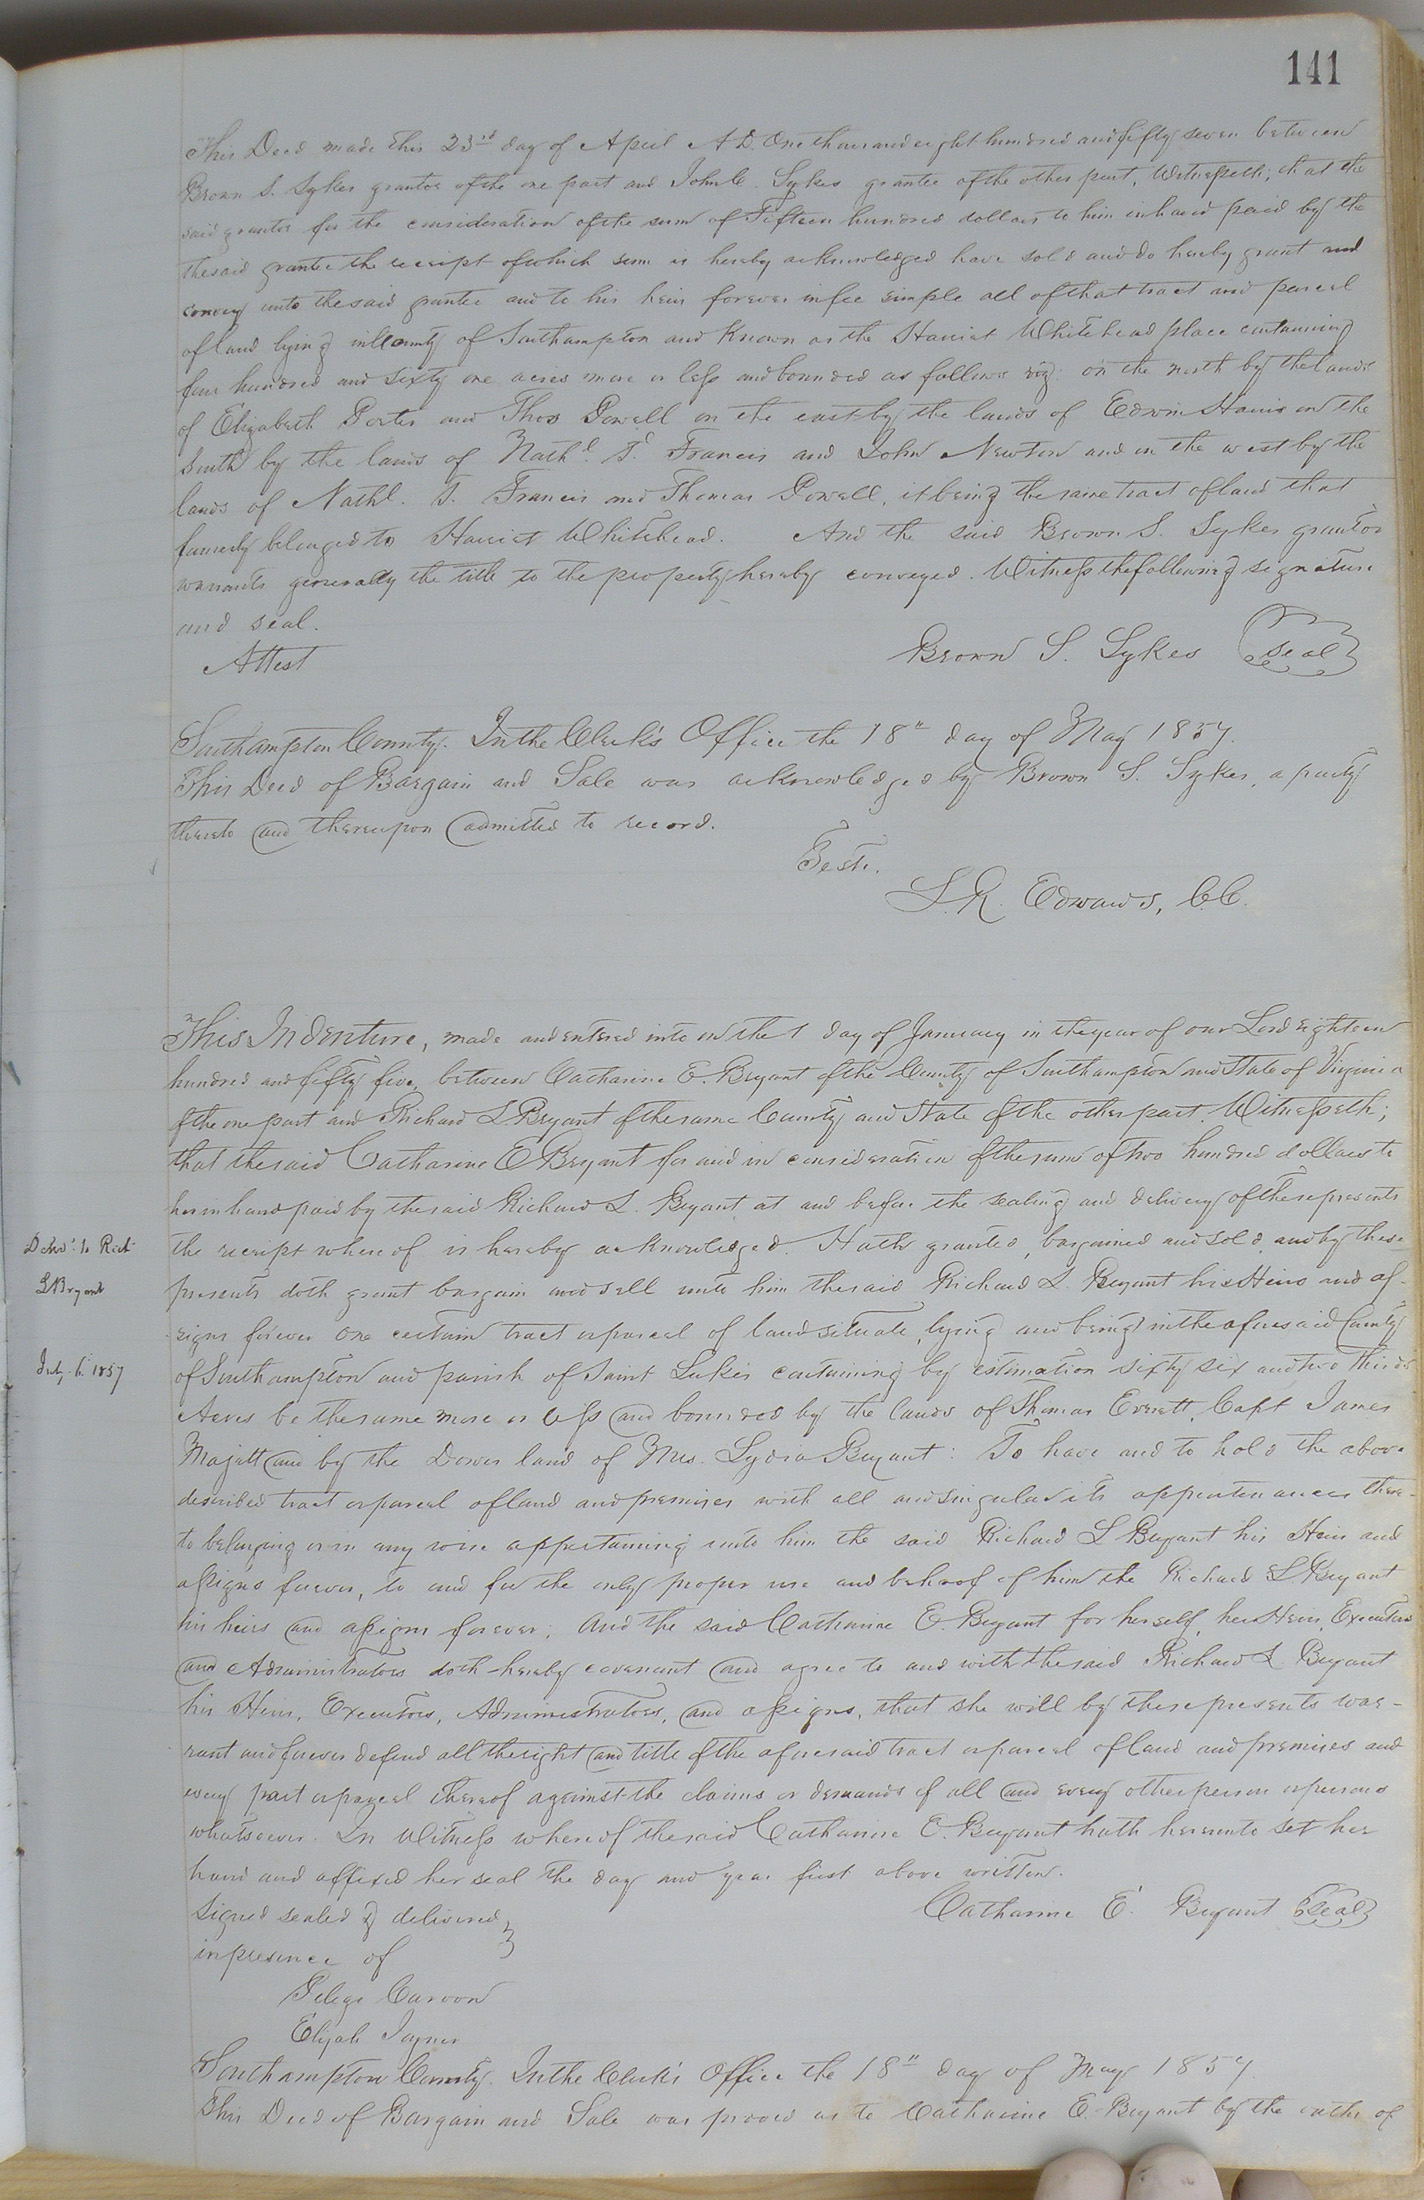 141
This Deed made this 23rd day of April A D. One thousand eight hundred and fifty seven between
Brown S. Sykes grantor of the one part and John C. Sykes grantee of the other part, Witnesseth; that the
said grantor for the consideration of the sum of Fifteen hundred dollars to him in hand paid by the
the said grantee the receipt of which sum is hereby acknowledged have sold and do hereby grant and
convey unto the said grantee and to his heirs forever in fee simple all of that tract and parcel
of land lying in County of Southampton and Known as the Harriet Whitehead place containing
four hundred and sixty one acres more or less and bounded as follows viz: on the north by the lands
of Elizabeth Porter and Thos Powell on the east by the lands of Edwin Harris on the
South by the lands of Nathl. T. Francis and John Newton and on the west by the
lands of Nathl. T. Francis and Thomas Powell, it being the same tract of land that
formerly belonged to Harriet Whitehead. And the said Brown S. Sykes grantor
warrants generally the title to the property hereby conveyed. Witness the following signature
and seal.
Attest Brown S. Sykes Seal
Southampton County. In the Clerk's Office the 18" day of May 1857.
This Deed of Bargain and Sale was acknowledged by Brown S. Sykes, a party
thereto and thereupon admitted to record.
Teste.
L. R. Edwards, C.C.
This Indenture, made and entered into on the 1 day of January in the year of our Lord eighteen
hundred and fifty five, between Catharine E. Bryant of the County of Southampton and State of Virginia
of the one part and Richard L Bryant of the same County and State of the other part. Witnesseth;
that the said Catharine E Bryant for and in consideration of the sum of two hundred dollars to
her in hand paid by the said Richard L. Bryant at and before the sealing and delivery of these presents
Delvd. to Richd
the receipt whereof is hereby acknowledged. Hath granted, bargained and sold, and by these
L Bryant
presents doth grant bargain and sell unto him the said Richard L. Bryant his Heirs and as-
signs forever one certain tract or parcel of land situate, lying and being in the aforesaid County
July 6. 1857
of Southampton and parish of Saint Lukes containing by estimation sixty six and two thirds
Acres be the same more or less and bounded by the lands of Thomas Everett, Capt James
Majett and by the Dower land of Mrs. Lydia Bryant: To have and to hold the above
described tract or parcel of land and premises with all and singular its appurtenances there-
to belonging or in any wise appertaining unto him the said Richard L Bryant his Heirs and
assigns forever, to and for the only proper use and behoof of him the Richard L. Bryant
his heirs and assigns forever; And the said Catharine E. Bryant for herself, her Heirs, Executors
and Administrators doth hereby covenant and agree to and with the said Richard L. Bryant
his Heirs, Executors, Administrators, and assigns, that she will by these presents war-
rant and forever defend all the right and title of the aforesaid tract or parcel of land and premises and
every part or parcel thereof against the claims or demands of all and every other person or persons
whatsoever. In Witness whereof the said Catharine E. Bryant hath hereunto set her
hand and affixed her seal the day and year first above written.
Signed sealed & delivered Catharine E. Bryant Seal
in presence of
Elijah Joyner
Southampton County. In the Clerk's Office the 18" day of May 1857.
This Deed of Bargain and Sale was proved as to Catharine E. Bryant by the oaths of